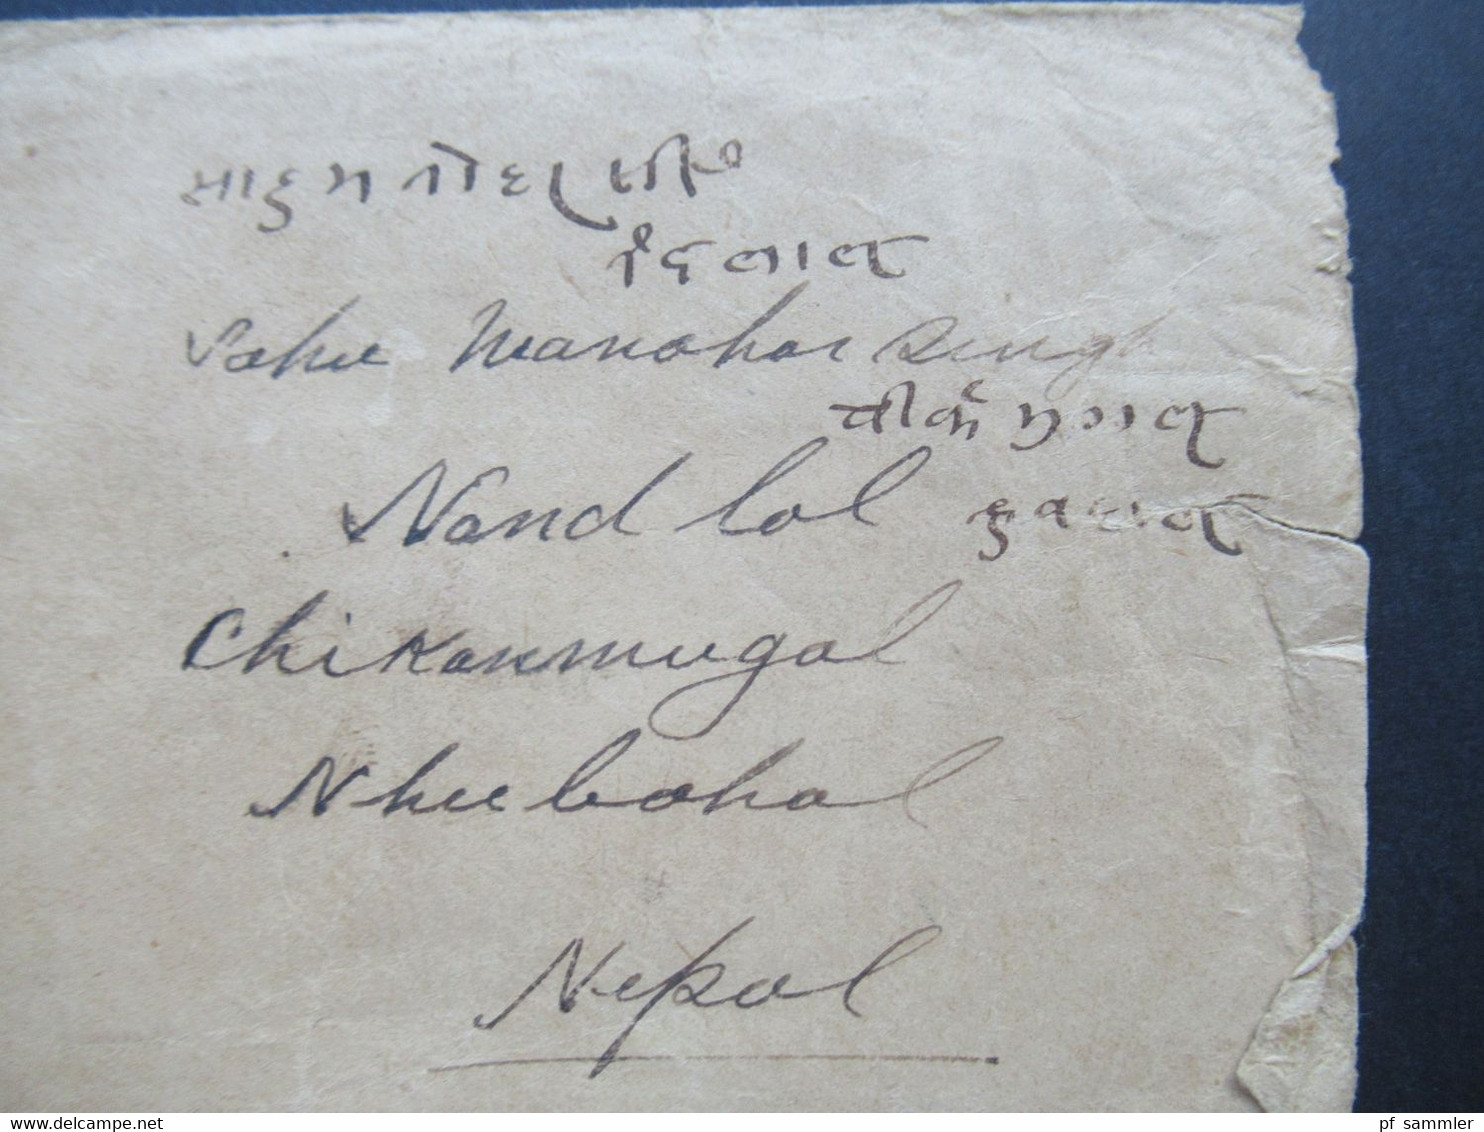 साहु मनोहर सिंह
नंदलाल
Sahu Manohar Singh
चीकंमुगल
Nand Lal
Chikanmugal
Nhubahal
Nepal
www.delcampe.net
pf_sammler